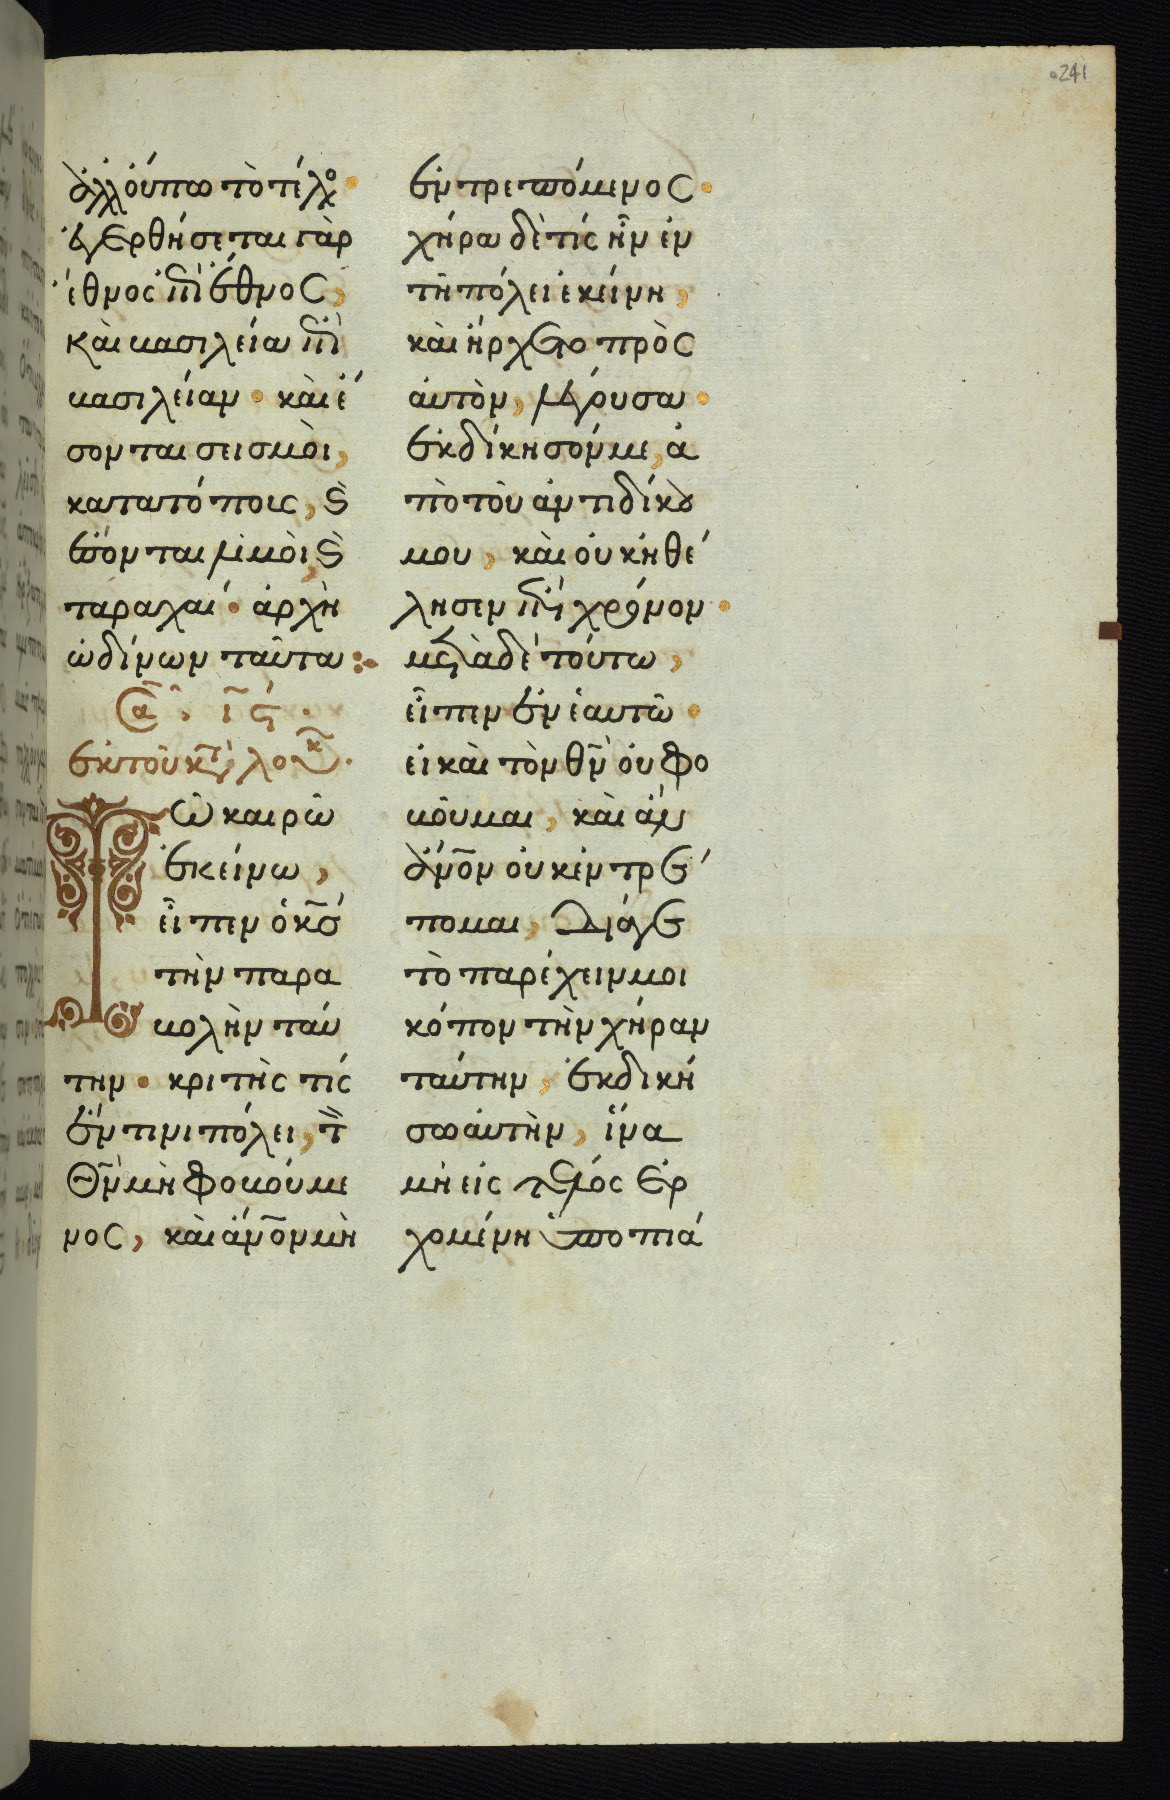 241
ἀλλ οὔπω τὸ τέλο
ἐγερθήσεται γὰρ
ἔθνος ἐπὶ ἔθνος,
καὶ βασιλεία ἐπὶ
βασιλείαν · καὶ ἔ
σονται σεισμοὶ,
κατὰ τόποις, ϗ
ἔσονται λιμοὶ, ϗ
ταραχαί · ἀρχὴ
ὠδίνων ταῦτα :·
Σα , ις ·
ἐκ τοῦ κτ λουκ ·
Τῶ καιρῶ
ἐκείνω,
εἶπεν ὁ κσ
τὴν παρα
βολὴν ταύ
την · κριτὴς τίς
ἔν τινι πόλει, τ
θν μὴ φοβούμε
νος, καὶ ἄνον μὴ
ἐντρεπόμενος ·
χήρα δὲ τίς ἦν ἐν
τῆ πόλει ἐκείνη,
καὶ ἤρχετο πρὸς
αὐτὸν, λέγουσα ·
ἐκδίκησόν με, ἀ
πὸ τοῦ ἀντιδίκου
μου, καὶ οὐκ ἠθέ
λησεν ἐπὶ χρόνον ·
μετὰ δέ τοῦτω,
εἶπεν ἐν ἑαυτῶ ·
εἰ καὶ τὸν θν οὐ φο
βοῦμαι, καὶ ἄν
ἄνον οὐκ ἐντρέ
πομαι, διάγε
τὸ παρέχειν μοι
κόπον τὴν χήραν
ταύτην, ἐκδική
σω αὐτὴν, ἵνα
μὴ εἰς τέλος ἐρ
χομένη ὑποπιά